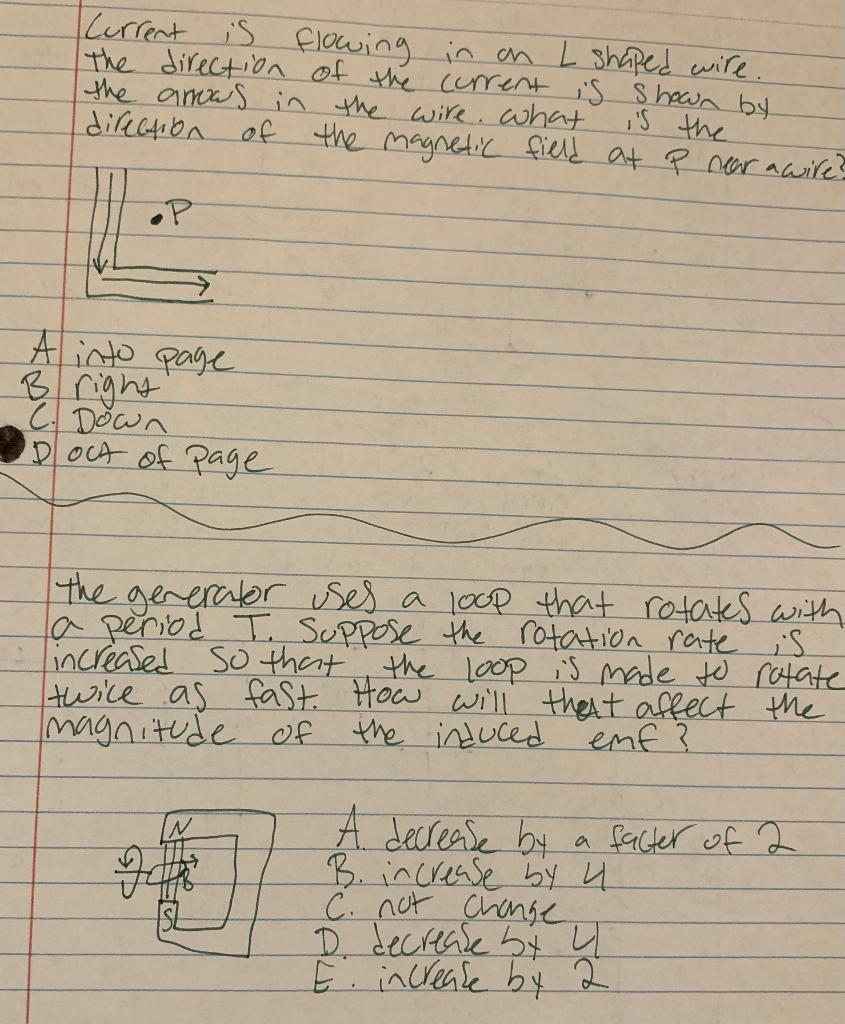 Current is flowing in an L shaped wire.
the direction of the current is shown by
the arrows in the wire. what is the
direction of the magnetic field at P near a wire?
P
A into page
B right
C. Down
D out of page
the generator uses a loop that rotates with
a period T. Suppose the rotation rate is
increased so that the loop is made to rotate
twice as fast. How will that affect the
magnitude of the induced emf?
N
B
S
A. decrease by a facter of 2
B. increase by 4
C. not change
D. decrease by 4
E. increase by 2